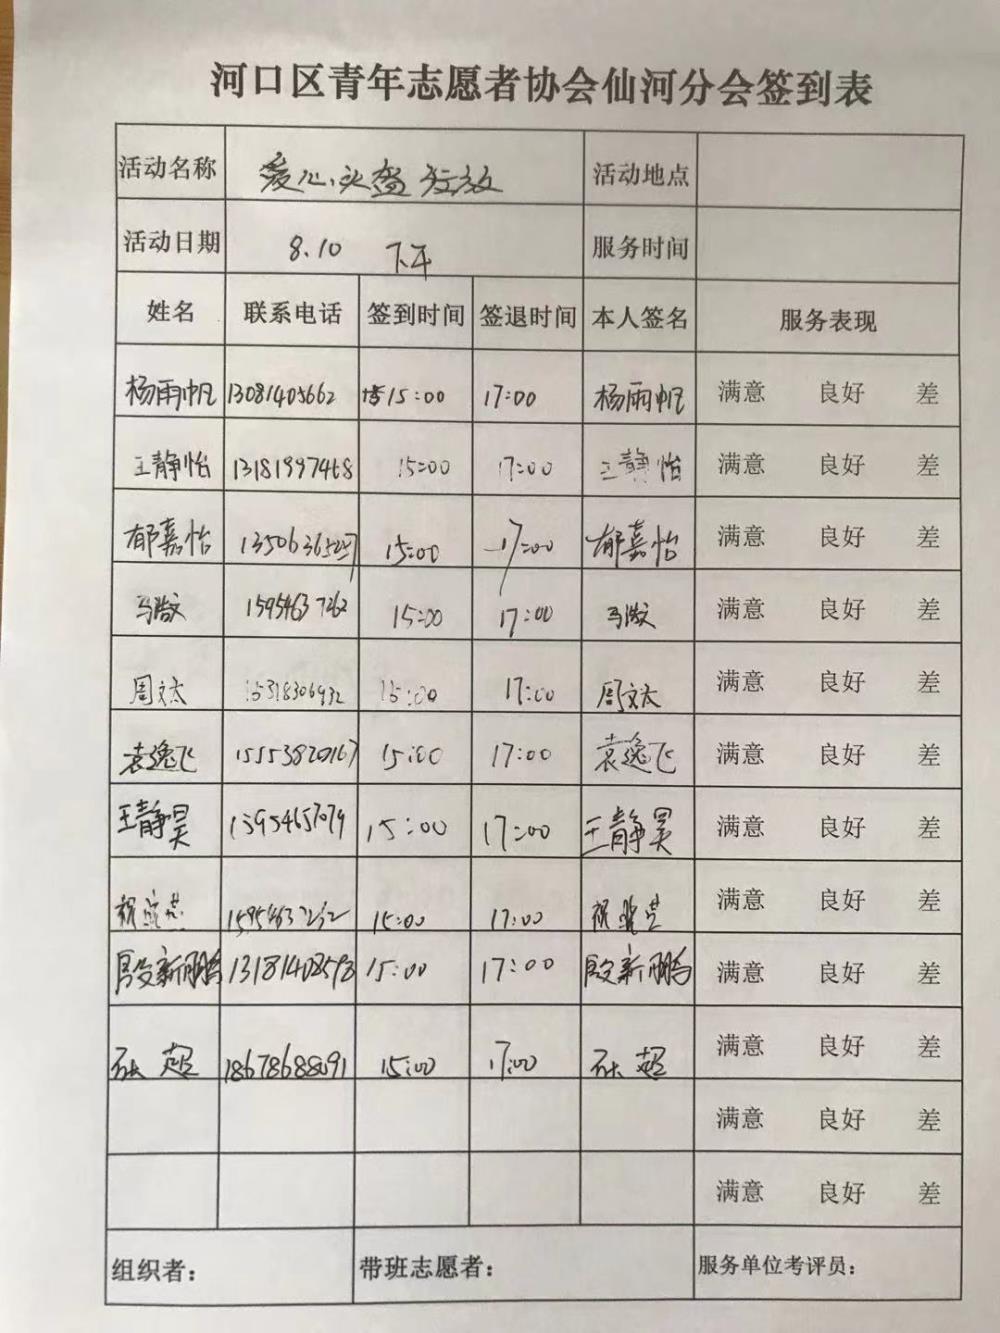 河口区青年志愿者协会仙河分会签到表
活动名称 爱心头盔发放 活动地点
活动日期 8.10 下午 服务时间
姓名 联系电话 签到时间 签退时间 本人签名 服务表现
杨雨帆 13081405662 15:00 17:00 杨雨帆 满意 良好 差
王静怡 13181997468 15:00 17:00 王静怡 满意 良好 差
郁嘉怡 15:00 17:00 郁嘉怡 满意 良好 差
马澂 15954637262 15:00 17:00 马澂 满意 良好 差
周文太 15318306932 15:00 17:00 周文太 满意 良好 差
袁逸飞 15553820167 15:00 17:00 袁逸飞 满意 良好 差
王静昊 15954657079 15:00 17:00 王静昊 满意 良好 差
15:00 17:00 满意 良好 差
殷新鹏 13181408593 15:00 17:00 殷新鹏 满意 良好 差
超 18678688091 15:00 17:00 超 满意 良好 差
满意 良好 差
满意 良好 差
组织者： 带班志愿者： 服务单位考评员：